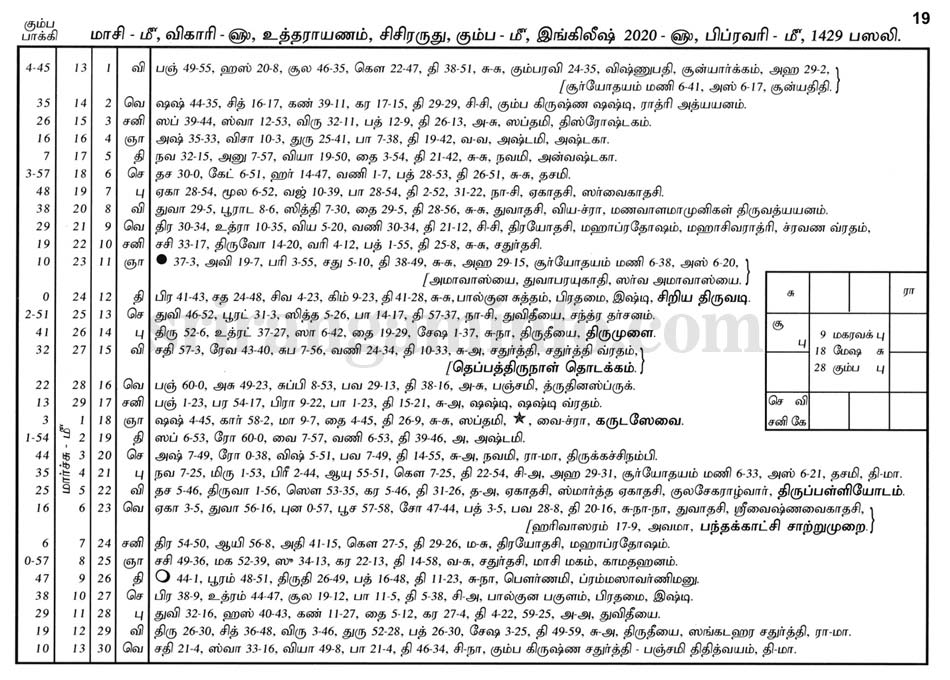 19
கும்ப பாக்கி
மாசி - மீ, விகாரி - ௵, உத்தராயணம், சிசிரருது, கும்ப - மீ, இங்கிலீஷ் 2020 - ௵, பிப்ரவரி - மீ, 1429 பஸலி.
4-45 13 1 வி பஞ் 49-55, ஹஸ் 20-8, சூல 46-35, கௌ 22-47, தி 38-51, சு-சு, கும்பரவி 24-35, விஷ்ணுபதி, சூன்யார்க்கம், அஹ 29-2,
[சூர்யோதயம் மணி 6-41, அஸ் 6-17, சூன்யதிதி.
35 14 2 வெ ஷஷ் 44-35, சித் 16-17, கண் 39-11, கர 17-15, தி 29-29, சி-சி, கும்ப கிருஷ்ண ஷஷ்டி, ராத்ரி அத்யயனம்.
26 15 3 சனி ஸப் 39-44, ஸ்வா 12-53, விரு 32-11, பத் 12-9, தி 26-13, அ-சு, ஸப்தமி, திஸ்ரோஷ்டகம்.
16 16 4 ஞா அஷ் 35-33, விசா 10-3, துரு 25-41, பா 7-38, தி 19-42, வ-வ, அஷ்டமி, அஷ்டகா.
7 17 5 தி நவ 32-15, அனு 7-57, வியா 19-50, தை 3-54, தி 21-42, சு-சு, நவமி, அன்வஷ்டகா.
3-57 18 6 செ தச 30-0, கேட் 6-51, ஹர் 14-47, வணி 1-7, பத் 28-53, தி 26-51, சு-சு, தசமி.
48 19 7 பு ஏகா 28-54, மூல 6-52, வஜ் 10-39, பா 28-54, தி 2-52, 31-22, நா-சி, ஏகாதசி, ஸர்வைகாதசி.
38 20 8 வி துவா 29-5, பூராட 8-6, ஸித்தி 7-30, தை 29-5, தி 28-56, சு-சு, துவாதசி, விய-ச்ரா, மணவாளமாமுனிகள் திருவத்யயனம்.
29 21 9 வெ திர 30-34, உத்ரா 10-35, விய 5-20, வணி 30-34, தி 21-12, சி-சி, திரயோதசி, மஹாப்ரதோஷம், மஹாசிவராத்ரி, ச்ரவண வ்ரதம்,
19 22 10 சனி சசி 33-17, திருவோ 14-20, வரி 4-12, பத் 1-55, தி 25-8, சு-சு, சதுர்தசி.
10 23 11 ஞா ● 37-3, அவி 19-7, பரி 3-55, சது 5-10, தி 38-49, சு-சு, அஹ 29-15, சூர்யோதயம் மணி 6-38, அஸ் 6-20,
[அமாவாஸ்யை, துவாபரயுகாதி, ஸர்வ அமாவாஸ்யை.
0 24 12 தி பிர 41-43, சத 24-48, சிவ 4-23, கிம் 9-23, தி 41-28, சு-சு, பால்குன சுத்தம், பிரதமை, இஷ்டி, சிறிய திருவடி.
2-51 25 13 செ துவி 46-52, பூரட் 31-3, ஸித்த 5-26, பா 14-17, தி 57-37, நா-சி, துவிதீயை, சந்த்ர தர்சனம்.
41 26 14 பு திரு 52-6, உத்ரட் 37-27, ஸா 6-42, தை 19-29, சேஷ 1-37, சு-நா, திருதீயை, திருமுளை.
32 27 15 வி சதி 57-3, ரேவ 43-40, சுப 7-56, வணி 24-34, தி 10-33, சு-அ, சதுர்த்தி, சதுர்த்தி வ்ரதம்,
[தெப்பத்திருநாள் தொடக்கம்.
22 28 16 வெ பஞ் 60-0, அசு 49-23, சுப்பி 8-53, பவ 29-13, தி 38-16, அ-சு, பஞ்சமி, த்ருதினஸ்ப்ருக்.
13 29 17 சனி பஞ் 1-23, பர 54-17, பிரா 9-22, பா 1-23, தி 15-21, சு-அ, ஷஷ்டி, ஷஷ்டி வ்ரதம்.
மார்ச்சு - மீ
3 1 18 ஞா ஷஷ் 4-45, கார் 58-2, மா 9-7, தை 4-45, தி 26-9, சு-சு, ஸப்தமி, ★, வை-ச்ரா, கருடஸேவை.
1-54 2 19 தி ஸப் 6-53, ரோ 60-0, வை 7-57, வணி 6-53, தி 39-46, அ, அஷ்டமி.
44 3 20 செ அஷ் 7-49, ரோ 0-38, விஷ் 5-51, பவ 7-49, தி 14-55, சு-அ, நவமி, ரா-மா, திருக்கச்சிநம்பி.
35 4 21 பு நவ 7-25, மிரு 1-53, பிரீ 2-44, ஆயு 55-51, கௌ 7-25, தி 22-54, சி-அ, அஹ 29-31, சூர்யோதயம் மணி 6-33, அஸ் 6-21, தசமி, தி-மா.
25 5 22 வி தச 5-46, திருவா 1-56, ஸௌ 53-35, கர 5-46, தி 31-26, த-அ, ஏகாதசி, ஸ்மார்த்த ஏகாதசி, குலசேகராழ்வார், திருப்பள்ளியோடம்.
16 6 23 வெ ஏகா 3-5, துவா 56-16, புன 0-57, பூச 57-58, சோ 47-44, பத் 3-5, பவ 28-8, தி 20-16, சு-நா-நா, துவாதசி, ஸ்ரீவைஷ்ணவைகாதசி,
[ஹரிவாஸரம் 17-9, அவமா, பந்தக்காட்சி சாற்றுமுறை.
6 7 24 சனி திர 54-50, ஆயி 56-8, அதி 41-15, கௌ 27-5, தி 29-26, ம-சு, திரயோதசி, மஹாப்ரதோஷம்.
0-57 8 25 ஞா சசி 49-36, மக 52-39, ஸு 34-13, கர 22-13, தி 14-58, வ-சு, சதுர்தசி, மாசி மகம், காமதஹனம்.
47 9 26 தி ○ 44-1, பூரம் 48-51, திருதி 26-49, பத் 16-48, தி 11-23, சு-நா, பௌர்ணமி, ப்ரம்மஸாவர்ணிமனு.
38 10 27 செ பிர 38-9, உத்ரம் 44-47, சூல 19-12, பா 11-5, தி 5-38, சி-அ, பால்குன பகுளம், பிரதமை, இஷ்டி.
29 11 28 பு துவி 32-16, ஹஸ் 40-43, கண் 11-27, தை 5-12, கர 27-4, தி 4-22, 59-25, அ-அ, துவிதீயை.
19 12 29 வி திரு 26-30, சித் 36-48, விரு 3-46, துரு 52-28, பத் 26-30, சேஷ 3-25, தி 49-59, சு-அ, திருதீயை, ஸங்கடஹர சதுர்த்தி, ரா-மா.
10 13 30 வெ சதி 21-4, ஸ்வா 33-16, வியா 49-8, பா 21-4, தி 46-34, சி-நா, கும்ப கிருஷ்ண சதுர்த்தி - பஞ்சமி திதித்வயம், தி-மா.
சு ரா
சூ பு
9 மகரவக் பு
18 மேஷ சு
28 கும்ப பு
செ வி
சனி கே